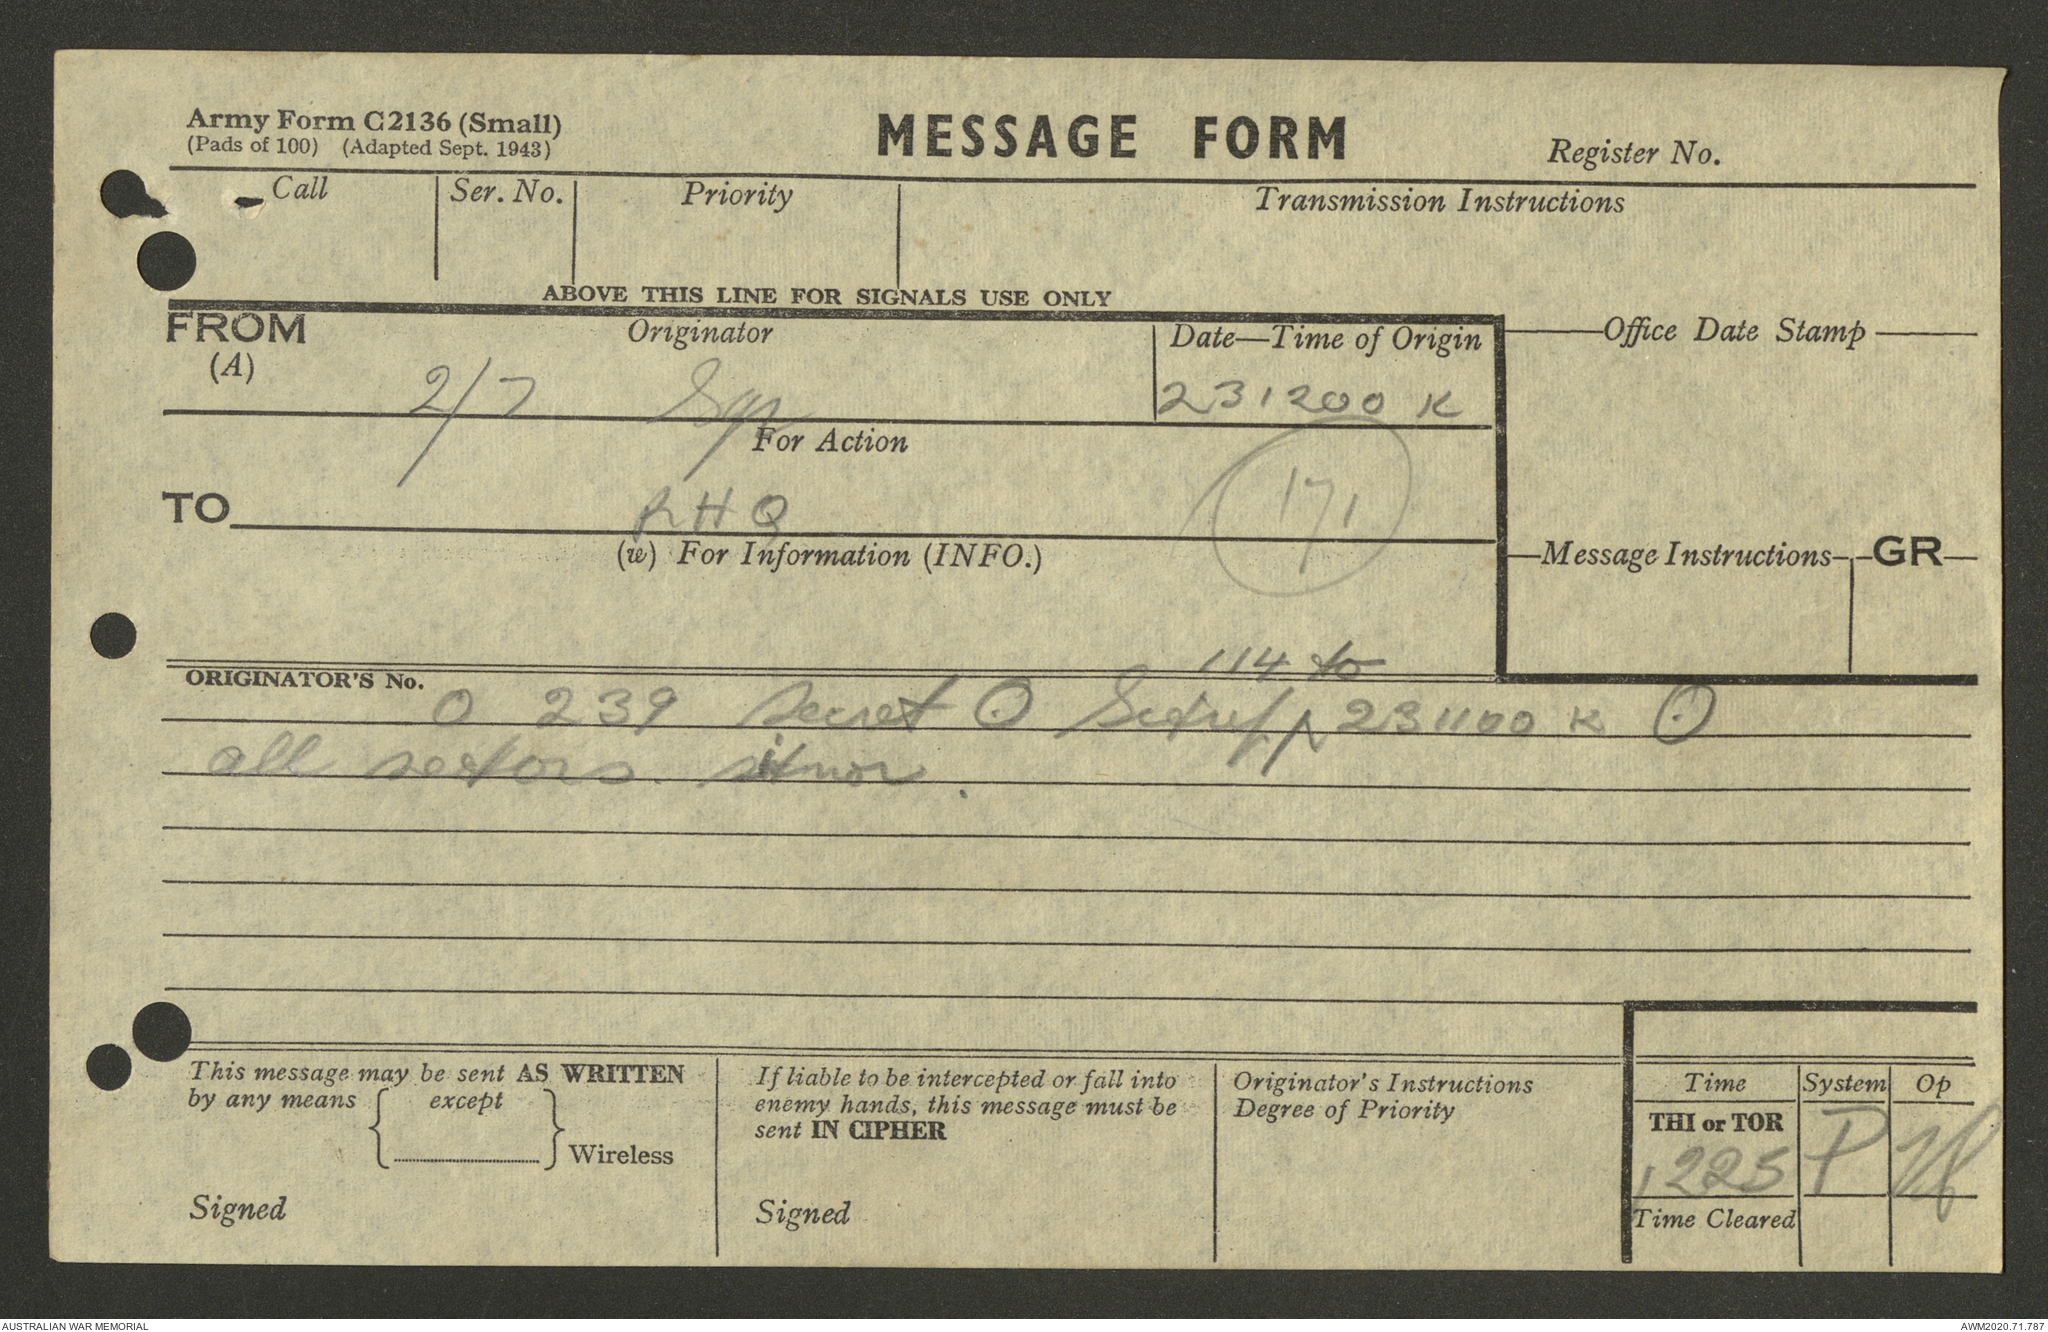 Army Form C2136 (Small)
(Pads of 100) (Adapted Sept. 1943)
MESSAGE FORM
Register No.
Call
Ser. No.
Priority
Transmission Instructions
ABOVE THIS LINE FOR SIGNALS USE ONLY
FROM
(A)
Originator
Date—Time of Origin
Office Date Stamp
2/7
231200 K
For Action
171
TO
RHQ
(w) For Information (INFO.)
Message Instructions
GR
114 to
ORIGINATOR'S No.
O 239 secret O Sitrep 231100 K O
all sectors. sitnor.
This message may be sent AS WRITTEN
by any means
except
Wireless
Signed
If liable to be intercepted or fall into
enemy hands, this message must be
sent IN CIPHER
Signed
Originator's Instructions
Degree of Priority
Time
System
Op
THI or TOR
1225
P
Time Cleared
AUSTRALIAN WAR MEMORIAL
AWM2020.71.787